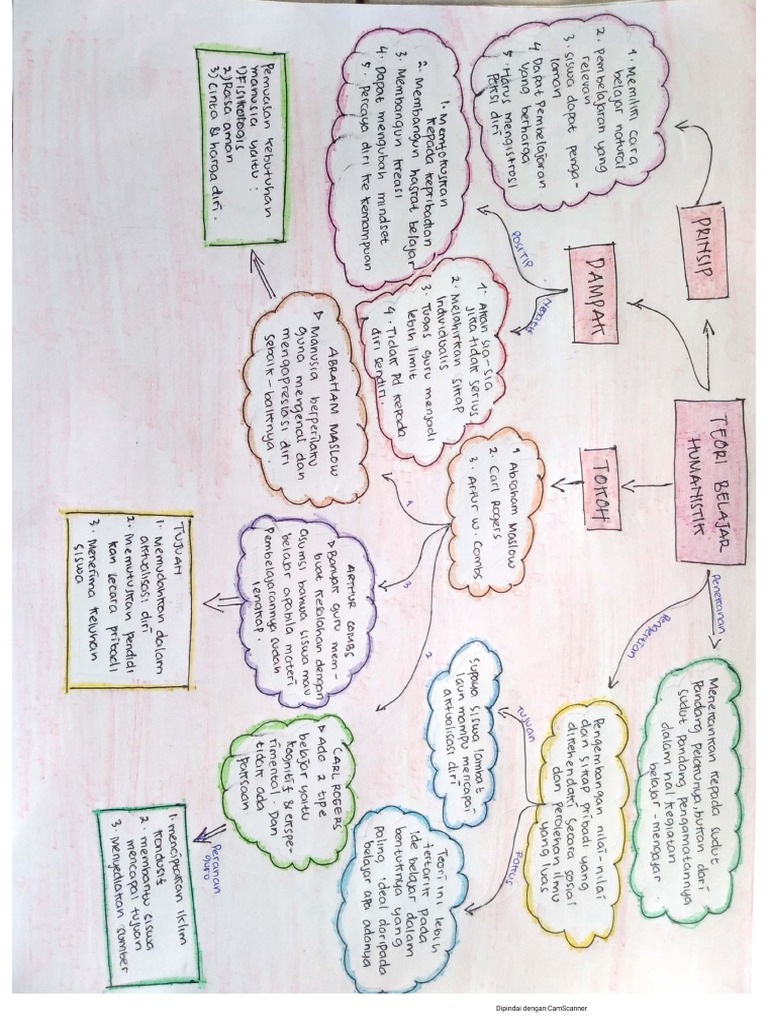 TEORI BELAJAR
HUMANISTIK
PRINSIP
1. Memiliki cara
belajar natural
2. Pembelajaran yang
relevan
3. siswa dapat penga-
laman
4 Dapat Pembelajaran
yang berharga
5. Harus mengistrosi
peksi diri
DAMPAK
POSITIP
1. Memfokuskan
kepada kepribadian
2. Membangun hasrat belajar
3. Membangun kreasi
4. Dapat mengubah mindset
5. Percaya diri ke kemampuan
Negatif
1. Akan sia-sia
jika tidak serius
2. Melahirkan sikap
Individualis
3. Tugas guru menjadi
lebih limit
4. Tidak Pd kepada
diri sendiri.
TOKOH
1. Abraham Maslow
2. Carl Rogers
3. Artur W. Combs
1
ABRAHAM MASLOW
Manusia berperilaku
guna mengenal dan
mengapresiasi diri
sebaik-baiknya.
Pemuasan kebutuhan
manusia yaitu:
1) Fisikologis
2) Rasa aman
3) Cinta & harga diri.
3
ARTHUR COMBS
Banyak guru mem-
buat kesalahan dengan
asumsi bahwa siswa mau
belajar apabila materi
Pembelajarannya sudah
lengkap.
TUJUAN
1. Memudahkan dalam
aktualisasi diri
2. Memutuskan pendidi
kan secara pribadi
3. Menerima keluhan
siswa
2
CARL ROGERS
Ada 2 tipe
belajar yaitu
kognitif & ekspe-
rimental. Dan
tidak ada
paksaan
Peranan
guru
1. menciptakan iklim
kondusif
2. membantu siswa
mencapai tujuan
3. Menyediakan sumber
Penekanan
Menekankan kepada sudut
Pandang pelakunya, bukan dari
sudut pandang pengamatannya
dalam hal kegiatan
belajar-mengajar.
Pengertian
Pengembangan nilai-nilai
dan sikap pribadi yang
dikehendaki secara sosial
dan perolehan ilmu
yang luas
Tujuan
supaya siswa lambat
laun mampu mencapai
aktualisasi diri
Fokus
Teori ini lebih
tertarik pada
ide belajar dalam
bentuknya yang
paling ideal daripada
belajar apa adanya
Dipindai dengan CamScanner